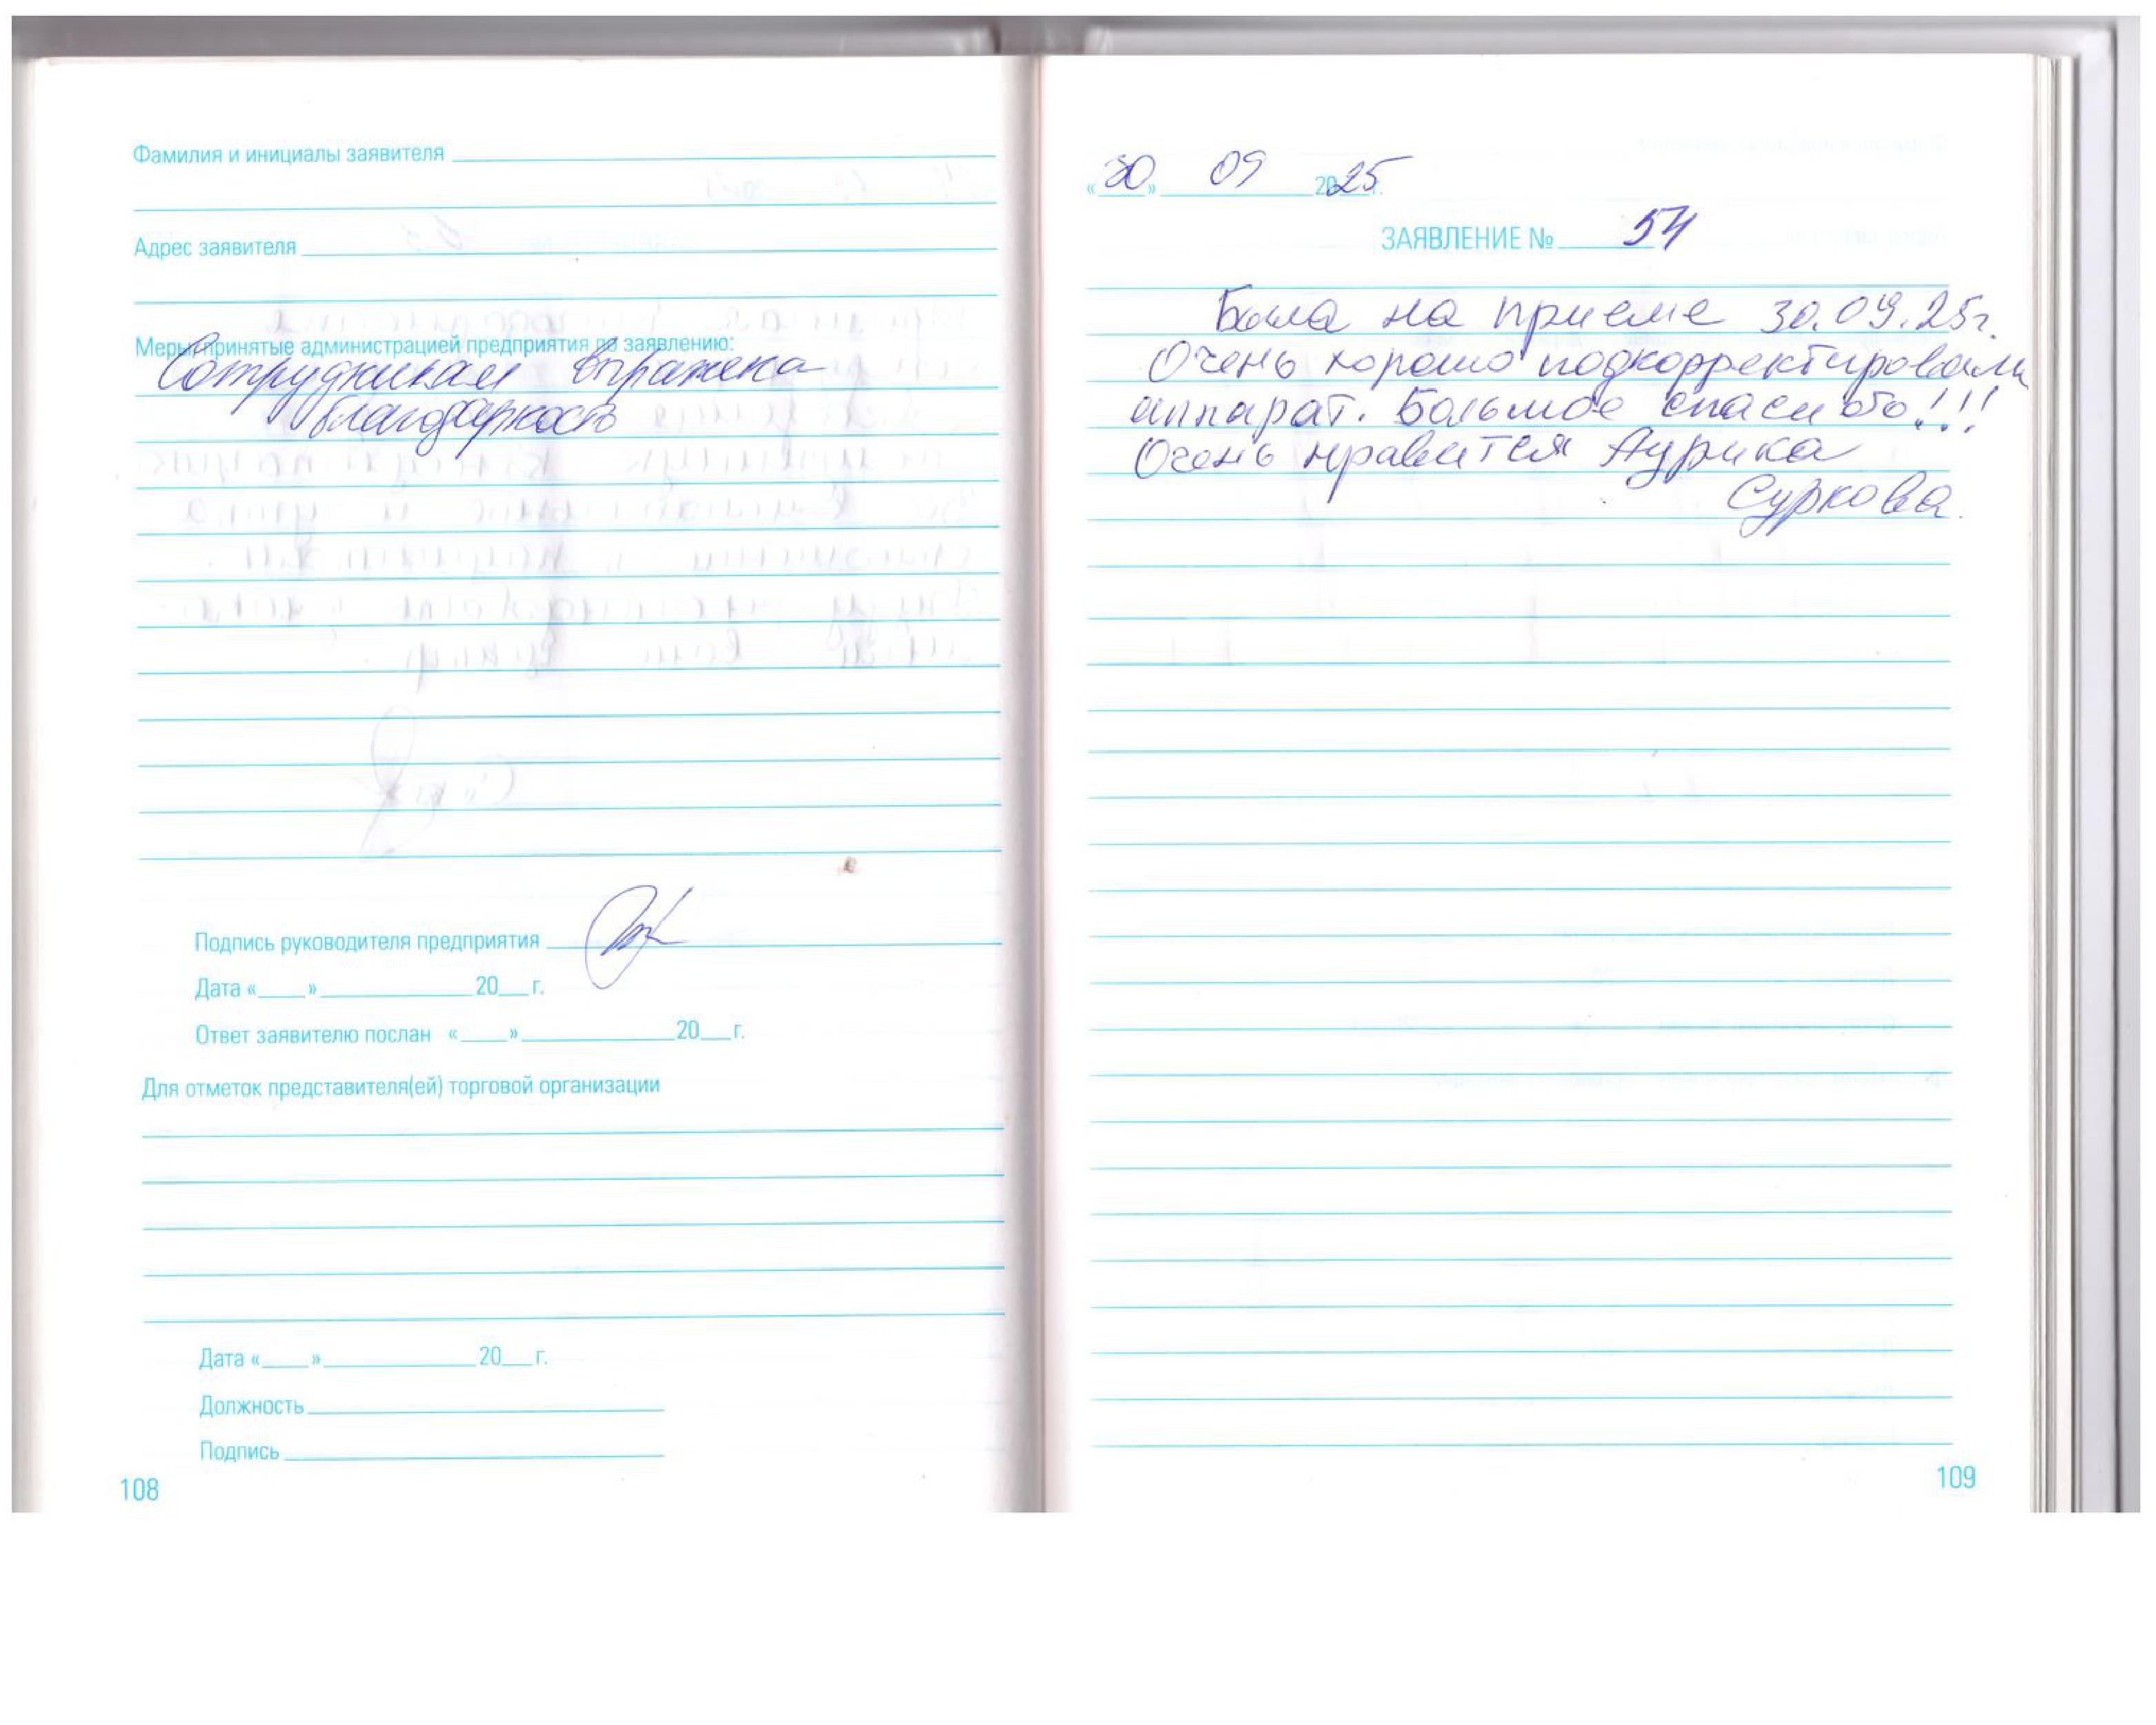 Фамилия и инициалы заявителя
Адрес заявителя
Меры, принятые администрацией предприятия по заявлению:
Сотрудникам выражена
благодарность
Подпись руководителя предприятия
Дата «____»____________20___г.
Ответ заявителю послан «____»____________20___г.
Для отметок представителя(ей) торговой организации
Дата «____»____________20___г.
Должность
Подпись
108
«30» 09 2025 г.
ЗАЯВЛЕНИЕ № 54
Была на приеме 30.09.25г.
Очень хорошо подкорректировали
аппарат. Большое спасибо!!!
Очень нравится Аурика
Суркова.
109